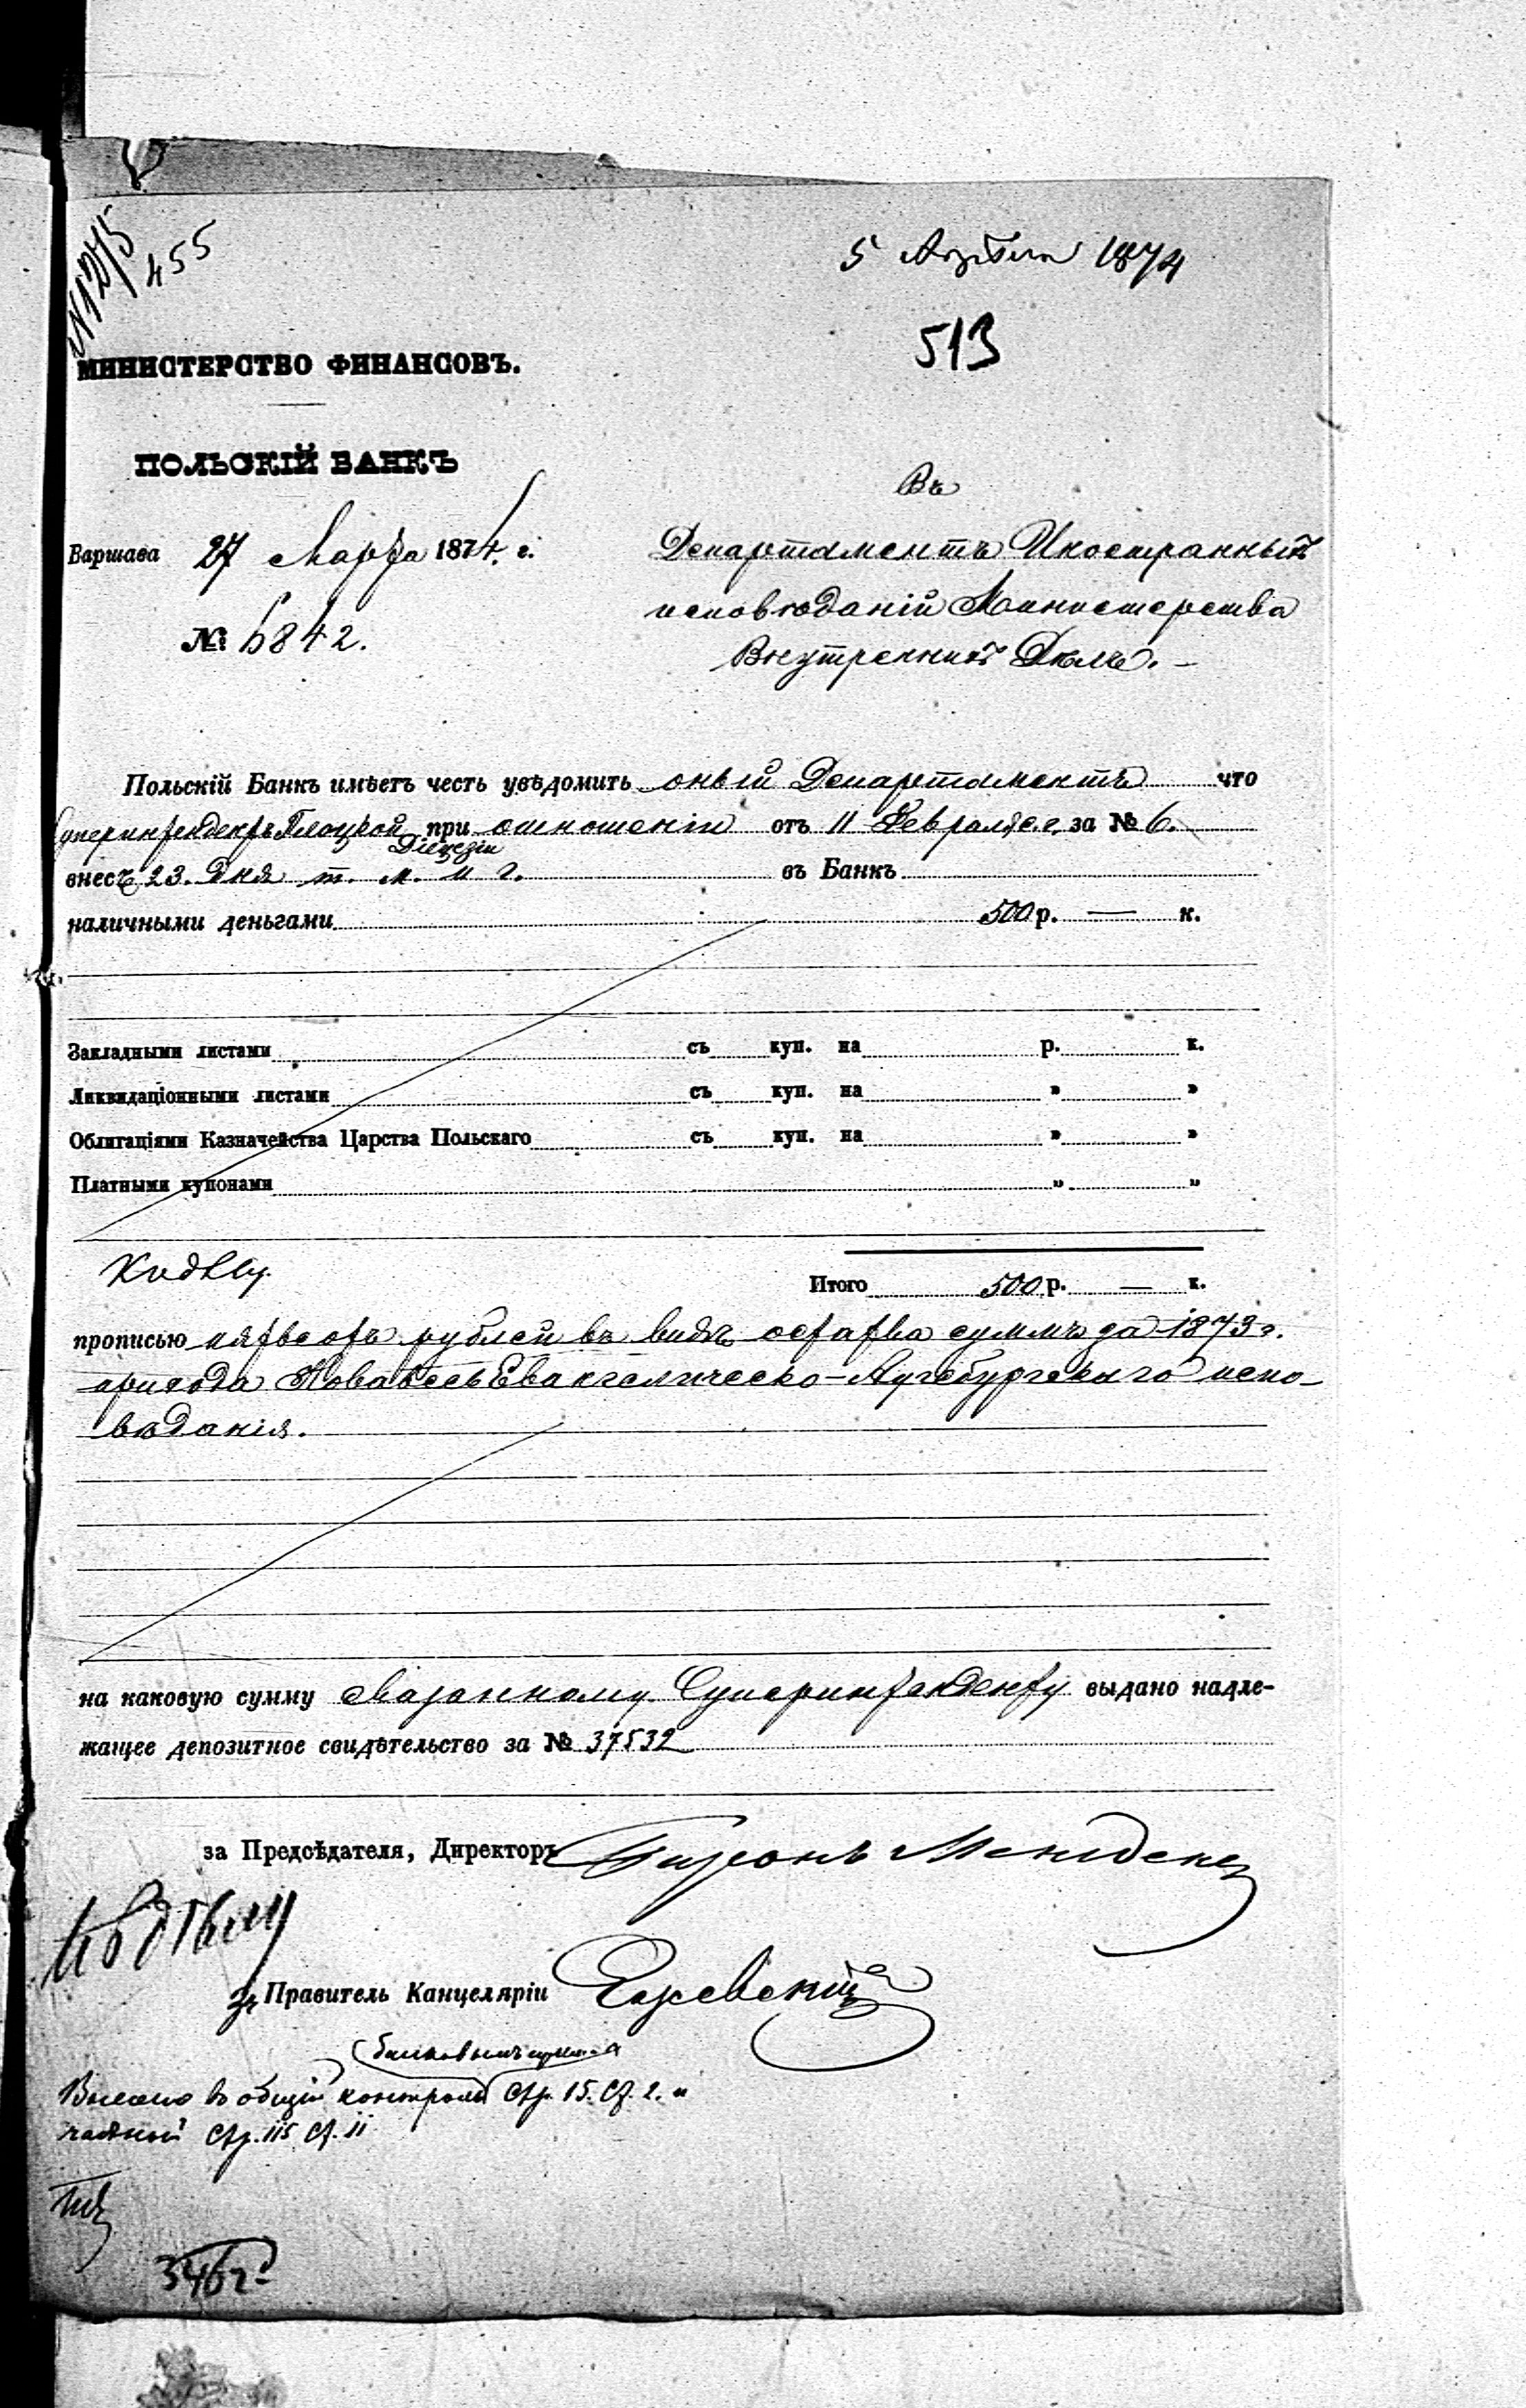 № 1275
455
5 Апрѣля 1874
513
МИНИСТЕРСТВО ФИНАНСОВЪ.
ПОЛЬСКІЙ БАНКЪ
Варшава 27 Марта 1874 г.
№ 6842.
Въ
Департаментъ Иностранныхъ
исповѣданій Министерства
Внутреннихъ Дѣлъ. —
Польскій Банкъ имѣетъ честь увѣдомить оный Департаментъ что
Суперинтендентъ Плоцкой Діецезіи при отношеніи отъ 11 Февраля с. г. за № 6.
внесъ 23. дня т. м. и г. въ Банкъ
наличными деньгами 500 р. — к.
Закладными листами съ куп. на р. к.
Ликвидаціонными листами съ куп. на " "
Облигаціями Казначейства Царства Польскаго съ куп. на " "
Платными купонами " "
Итого 500 р. — к.
прописью пятьсотъ рублей въ видѣ остатка суммъ за 1873 г.
прихода Новавесь Евангелическо-Аугсбургскаго испо-
вѣданія.
на каковую сумму сказанному Суперинтенденту выдано надле-
жащее депозитное свидѣтельство за № 37532
за Предсѣдателя, Директоръ Баронъ Менгденъ
Къ дѣлу
за Правитель Канцеляріи
въ общій контроль Стр. 15. Ст. 2. и
Стр. 115 Ст. 11